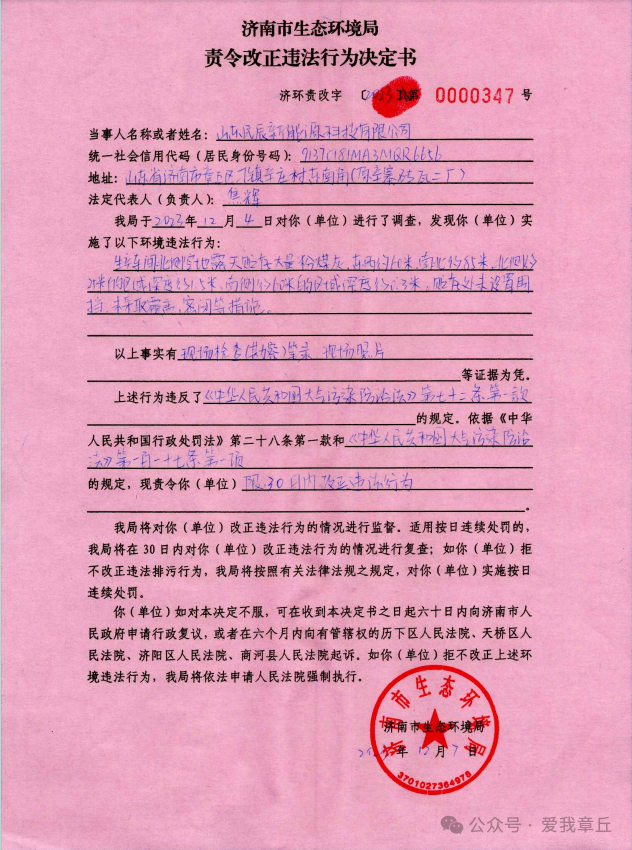 济南市生态环境局
责令改正违法行为决定书
济环责改字〔2023〕第 0000347 号
当事人名称或者姓名：山东民辰新能源科技有限公司
统一社会信用代码（居民身份号码）：9137C181MA3MQR6656
地址：山东省济南市章丘区刁镇辛庄村东南角（原辛寨砖瓦二厂）
法定代表人（负责人）：焦辉
我局于2023年12月4日对你（单位）进行了调查，发现你（单位）实
施了以下环境违法行为：
生产车间北侧空地露天贮存大量粉煤灰，东西约60米，南北约85米，北侧约
25米的区域深度约1.5米，南侧约60米的区域深度约0.3米，贮存处未设置围
挡，未采取覆盖、密闭等措施。
以上事实有现场检查（勘察）笔录 现场照片
等证据为凭。
上述行为违反了《中华人民共和国大气污染防治法》第七十二条第一款
的规定。依据《中华
人民共和国行政处罚法》第二十八条第一款和《中华人民共和国大气污染防治
法》第一百一十七条第一项
的规定，现责令你（单位）限30日内改正违法行为
。
我局将对你（单位）改正违法行为的情况进行监督。适用按日连续处罚的，
我局将在30日内对你（单位）改正违法行为的情况进行复查；如你（单位）拒
不改正违法排污行为，我局将按照有关法律法规之规定，对你（单位）实施按日
连续处罚。
你（单位）如对本决定不服，可在收到本决定书之日起六十日内向济南市人
民政府申请行政复议，或者在六个月内向有管辖权的历下区人民法院、天桥区人
民法院、济阳区人民法院、商河县人民法院起诉。如你（单位）拒不改正上述环
境违法行为，我局将依法申请人民法院强制执行。
济南市生态环境局
济南市生态环境局
2023年12月7日
3701027364978
公众号·爱我章丘